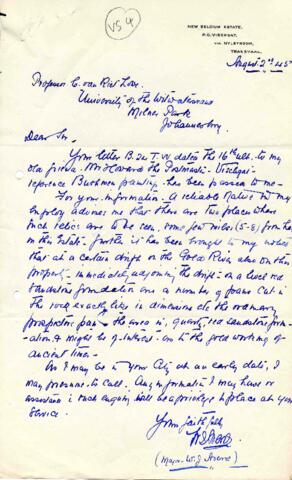 VS4
NEW BELGIUM ESTATE,
P.O. VIERFONT,
VIA NYLSTROOM,
TRANSVAAL.
August 2nd 45
Professor C. van Riet Lowe.
University of the Witwatersrand
Milner Park
Johannesburg
Dear Sir
Your letter B. 20 T. W dated the 16th ult. to my
old friend Mr Howard the Postmaster
reference Bushmen paintings has been passed to me.
For your information. A reliable Native in my
employ advises me that there are two places where
such relics are to be seen, some few miles (5-8) from here
on this Estate. Further it has been brought to my notice
that at a certain drift on the River also on this
property - immediately adjoining the drift - on a level red
sandstone foundation are a number of pans cut in
the rock exactly like in dimensions etc the ordinary
prospectors pan - the area is, quartz, red sandstone form-
ation, & might be of interest - as to the gold working of
ancient times.
As I may be in your City at an early date, I
may presume to call. Any information I may have or
in such enquiry will be placed at your
Service.
Yours faithfully
(Major W. J. )